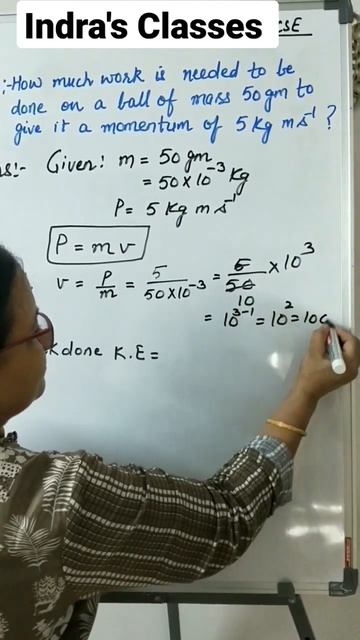 Indra's Classes
CSE
:-How much work is needed to be
done on a ball of mass 50 gm to
give it a momentum of 5 Kg m s⁻¹ ?
ns:- Given: m = 50 gm
= 50 × 10⁻³ Kg
P = 5 Kg m s⁻¹
P = m v
v = P/m = 5/50×10⁻³ = 5/50 × 10³
10
= 10³⁻¹ = 10² = 100
kdone K.E =